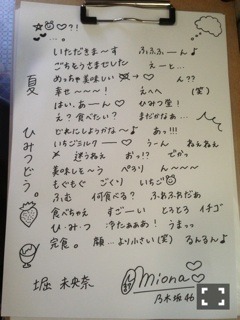 ♡?!
♥…。
いただきまーす ふふふーん♪
ごちそうさまでした えーと…
めっちゃ美味しい →♡ ん??
幸せ〜〜〜! えへへ (笑)
はい、あーん♡ ひみつ堂!
え?食べたい? まだかなぁ…
どれにしようがな〜♪ あっ!!!
いちごミルクー♡ うーん ねぇねぇ
迷うねぇ おっ!? ぜがっ
美味しそ〜う ぺろり ん〜〜〜
もぐもぐ ごくり いちご
ふむ 何食べる? ふぁふぁだぁ
食べちゃえ すごーい とろとろ イチゴ
ひ・み・つ 冷たぁぁあ! うまっっ
完食。 顔…より小さい(笑) るんるんよ
夏 ひみつどう。
堀 未央奈
miona♡
乃木坂46